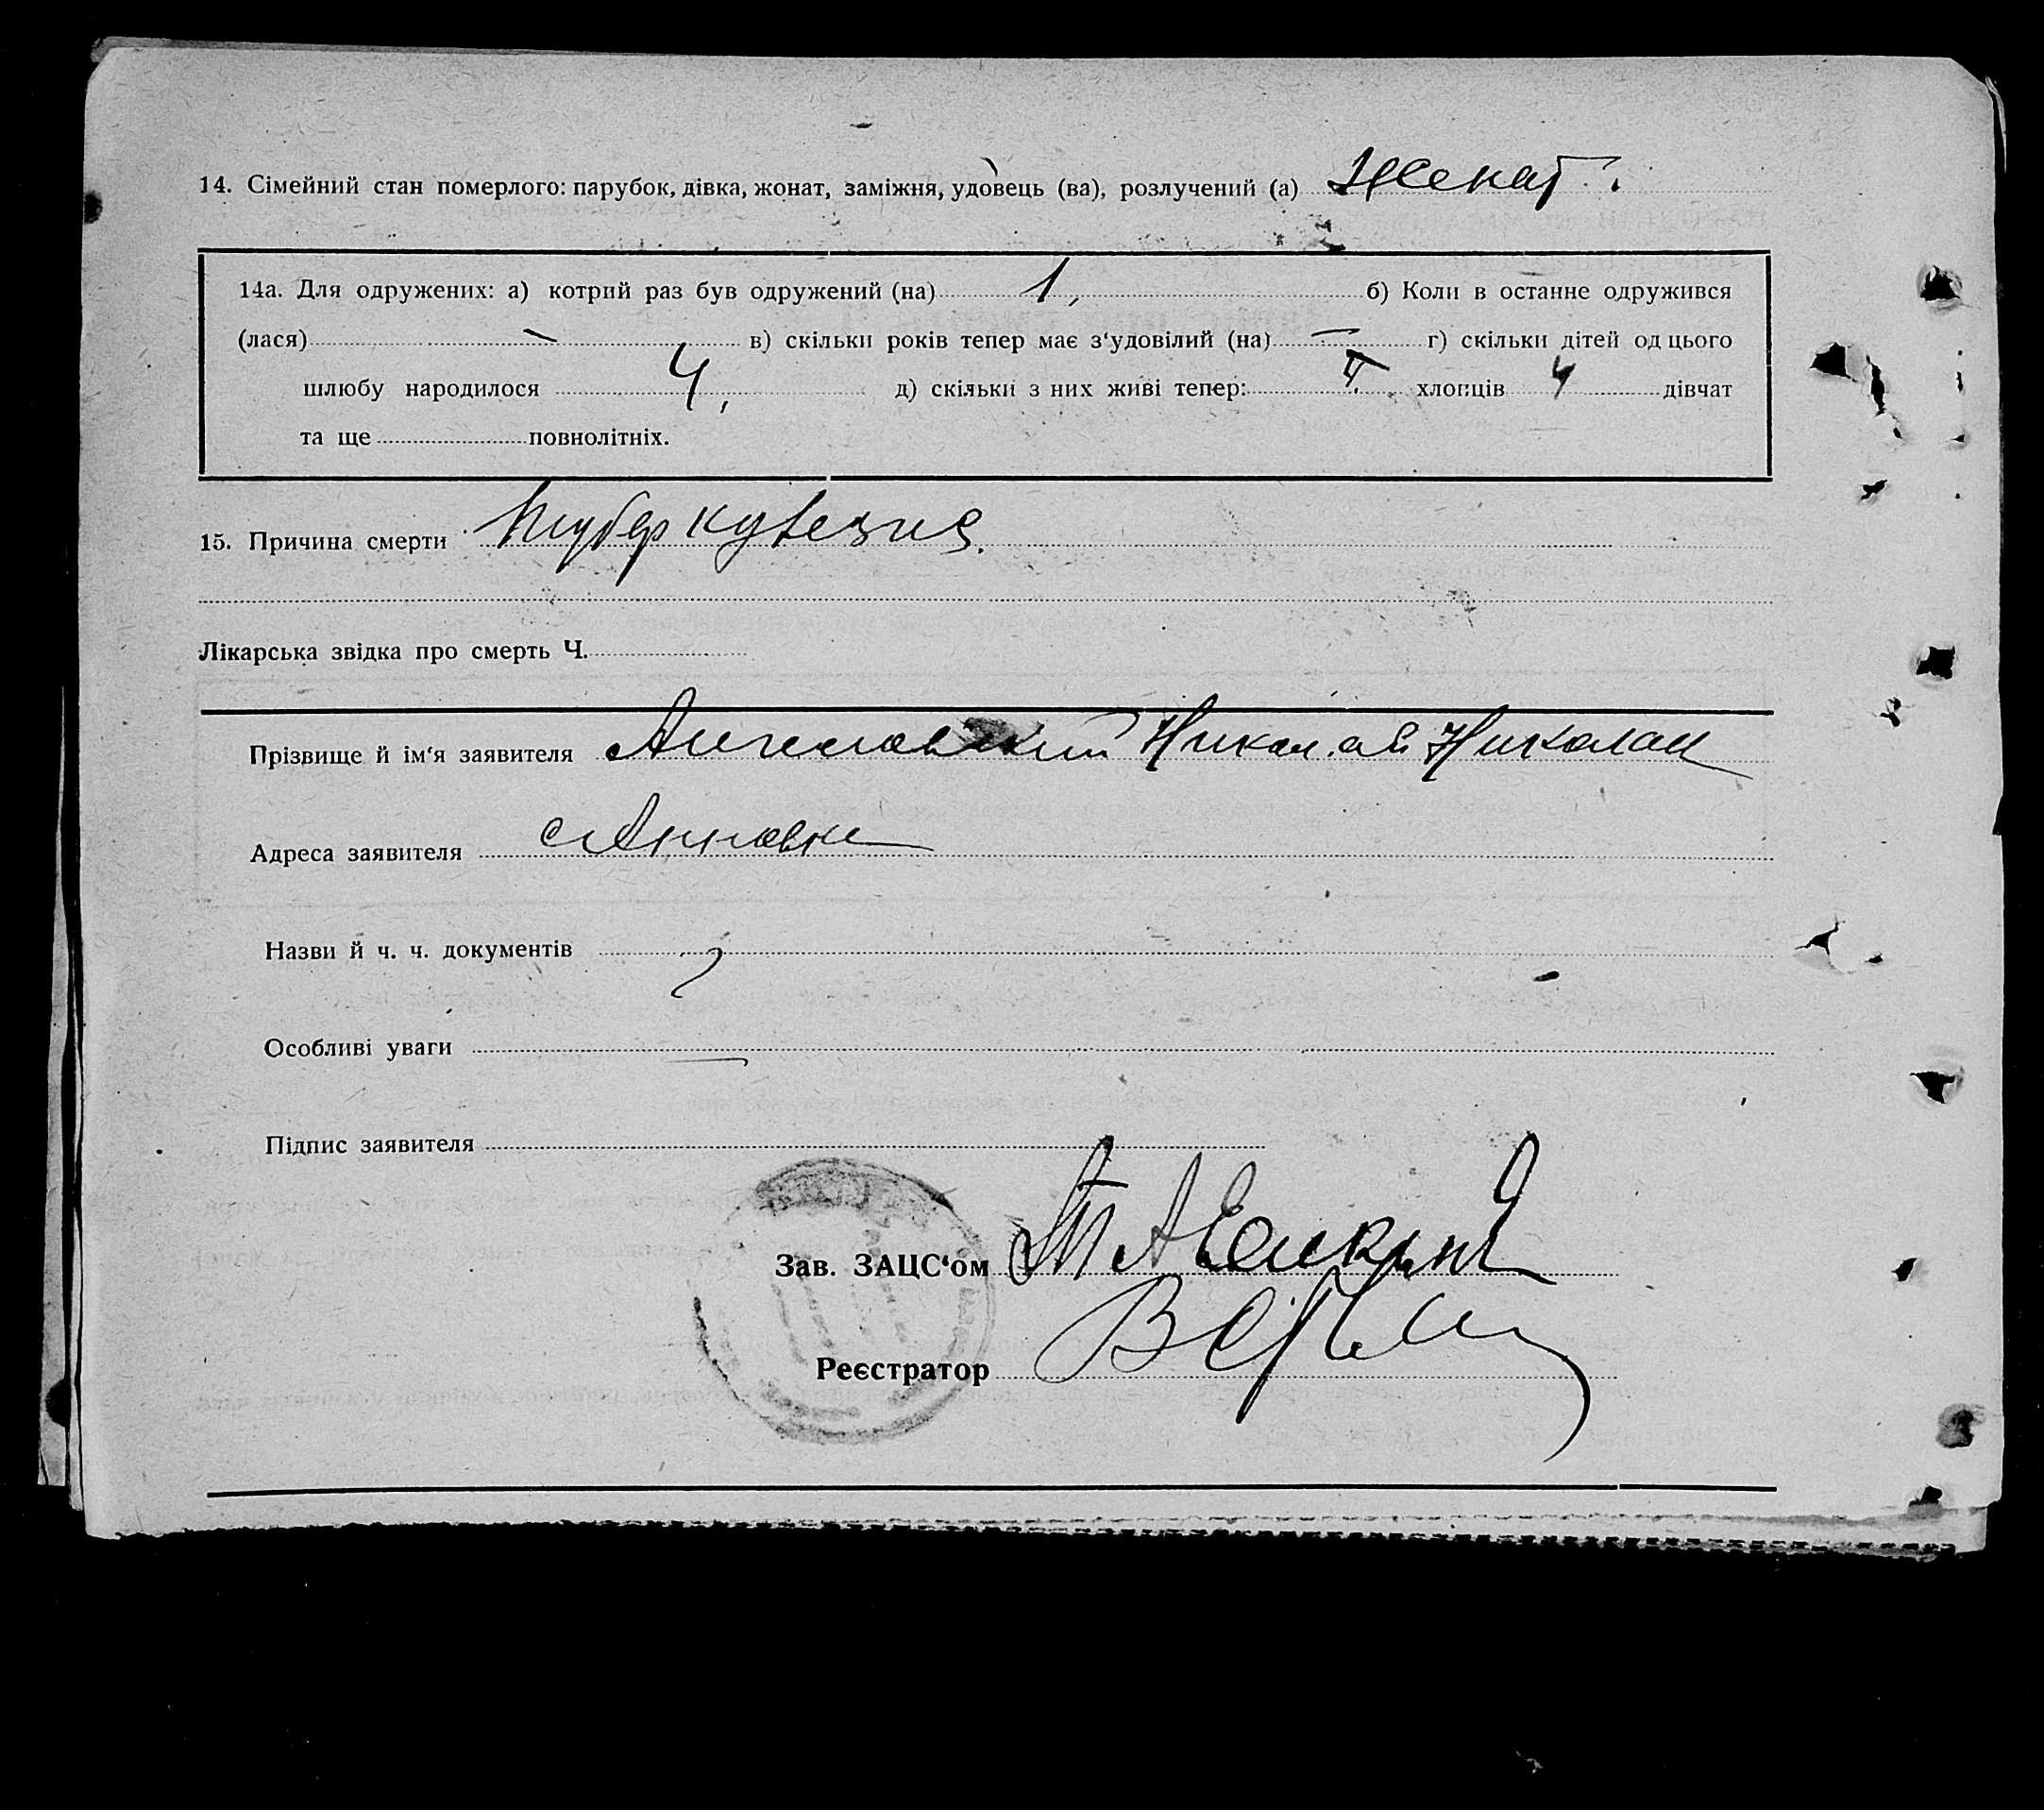 14. Сімейний стан померлого: парубок, дівка, жонат, заміжня, удовець (ва), розлучений (а) Женат.
14а. Для одружених: а) котрий раз був одружений (на) 1, б) Коли в останне одружився
(лася) – в) скільки років тепер має з‘удовілий (на) – г) скільки дітей од цього
шлюбу народилося 4, д) скільки з них живі тепер: хлопців 4 дівчат
та ще повнолітніх.
15. Причина смерти туберкулезия.
Лікарська звідка про смерть Ч.
Прізвище й ім‘я заявителя Николай Николаи
Адреса заявителя с Анновка
Назви й ч. ч. документів
Особливі уваги —
Підпис заявителя
Зав. ЗАЦС‘ом
Реєстратор